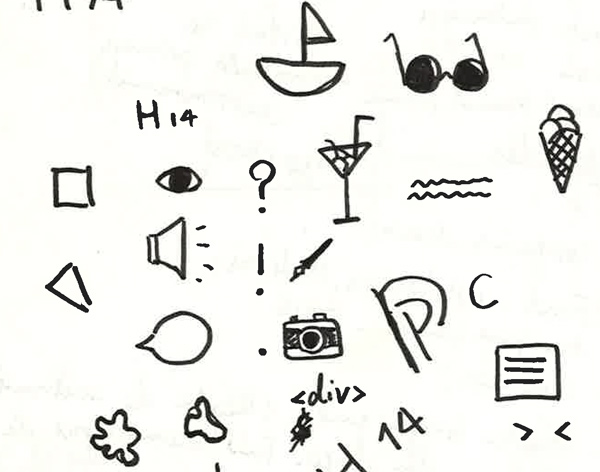 H 14
?
!
C
.
<div>
> <
14